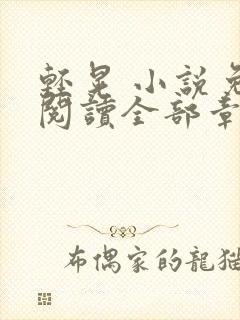 輕晃 小說免
閱讀全部章
布偶家的龍貓